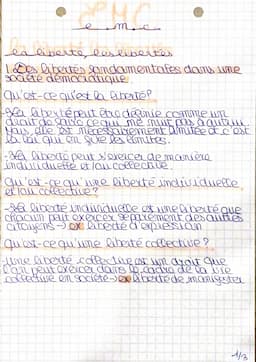 e.m.c
La liberté, les libertés
1. Les libertés fondamentales dans une
société démocratique
Qu'est-ce qu'est la liberté?
→ La liberté peut être définie comme un
droit de faire ce qui ne nuit pas à autrui.
Mais elle est nécessairement limitée et c'est
la loi qui en fixe les limites.
→ La liberté peut s'exercer de manière
individuelle et/ou collective.
Qu'est-ce qu'une liberté individuelle
et/ou collective?
→ La liberté individuelle est une liberté que
chacun peut exercer séparément des autres
citoyens → ex liberté d'expression
Qu'est-ce qu'une liberté collective?
- Une liberté collective est un droit que
l'on peut exercer dans le cadre de la vie
collective en société → ex liberté de manifester
1/3